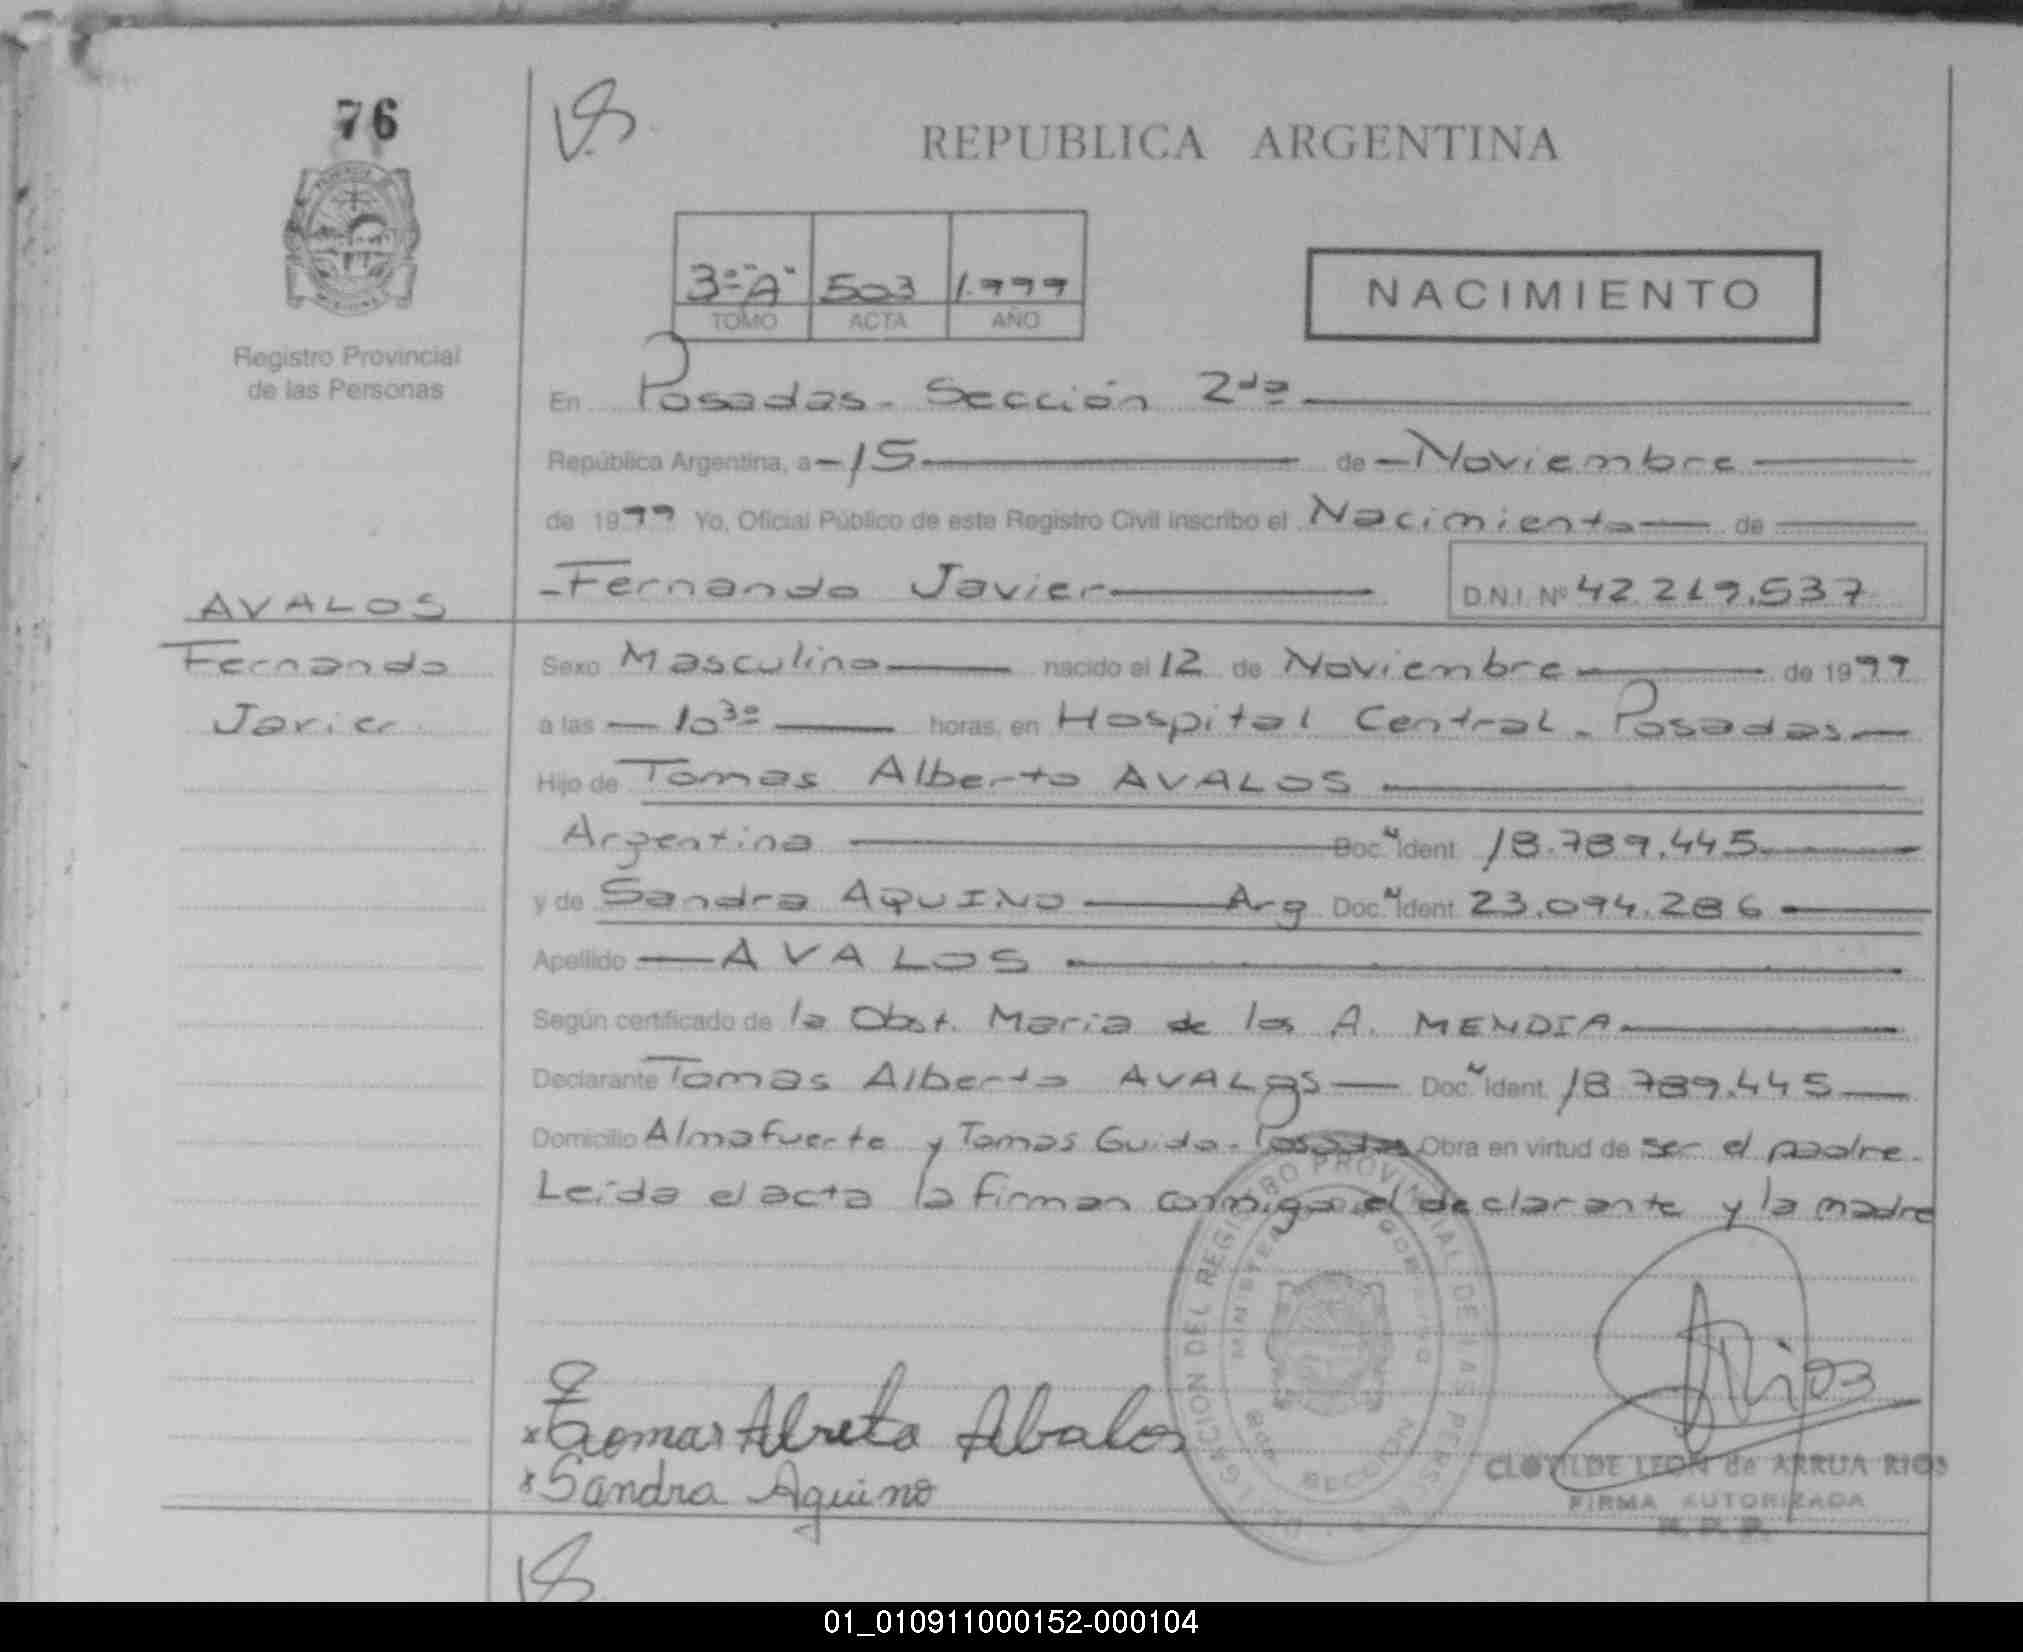 76
REPUBLICA ARGENTINA
3º "A" 503 1.999
TOMO ACTA AÑO
NACIMIENTO
Registro Provincial
de las Personas
En Posadas - Sección 2da
República Argentina, a 15 de Noviembre
de 1999 Yo, Oficial Público de este Registro Civil inscribo el Nacimiento de
Fernando Javier D.N.I. Nº 42.219.537
AVALOS
Fernando
Javier
Sexo Masculino nacido el 12 de Noviembre de 1999
a las 10 30 horas, en Hospital Central - Posadas
Hijo de Tomas Alberto AVALOS
Argentina Doc. Ident. 18.789.445
y de Sandra AQUINO Arg Doc. Ident. 23.094.286
Apellido AVALOS
Según certificado de la Obst. Maria de los A. MENDIA
Declarante Tomas Alberto AVALOS Doc. Ident. 18.789.445
Domicilio Almafuerte y Tomas Guido - Posadas Obra en virtud de ser el padre.
Leida el acta la firman conmigo el declarante y la madre
DELEGACION DEL REGISTRO PROVINCIAL DE LAS PERSONAS
MINISTERIO DE GOBIERNO
SECCION
Tomas Alreto Abalos
Sandra Aquino
ARios
CLOTILDE LEON de ARRUA RIOS
FIRMA AUTORIZADA
01_010911000152-000104